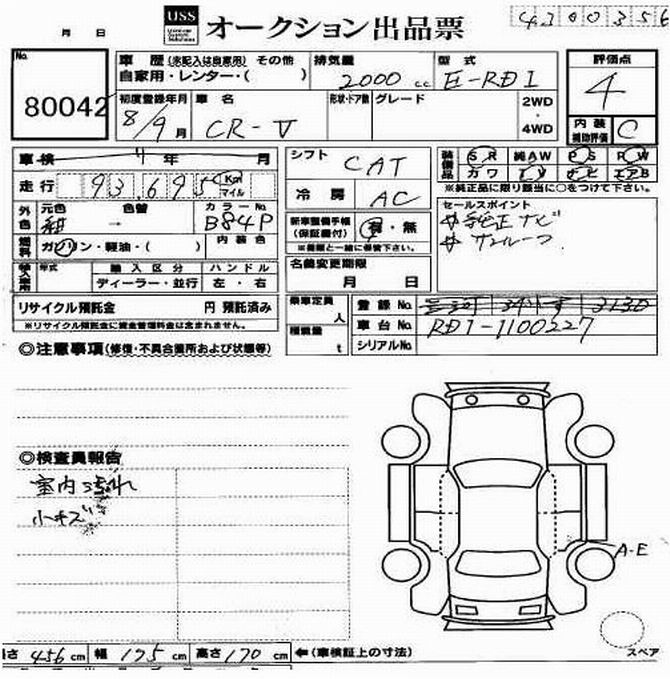 月 日
USS オークション出品票
4300356
No.
80042
車歴(未記入は自家用) その他
自家用・レンター・( )
排気量
2000 cc
型式
E-RD1
評価点
4
初度登録年月
8/9 月
車名
CR-V
形状・ドア数 グレード
2WD
・
4WD
内装
補助評価
C
車検 年 月
走行 93695 Km マイル
外色 元色 色替 カラーNo.
紺 → B84P
燃料 ガソリン・軽油・( ) 内装色
輸入車用 年式 輸入区分 ハンドル
ディーラー・並行 左・右
リサイクル預託金 円 預託済み
※リサイクル預託金に資金管理料金は含まれません。
シフト CAT
冷房 AC
新車整備手帳
(保証書付)
有・無
※書類と一緒に保管下さい。
名義変更期限
月 日
乗車定員 人
積載量 t
装備品 SR 純AW PS PW
カワ TV ナビ エアB
※純正品に限り該当に○をつけて下さい。
セールスポイント
純正ナビ
サンルーフ
登録No. 3130
車台No. RD1-1100227
シリアルNo.
◎注意事項(修復・不具合箇所および状態等)
◎検査員報告
室内汚れ
小キズ
A-E
スペア
456 cm 幅 175 cm 高さ 170 cm ←(車検証上の寸法)